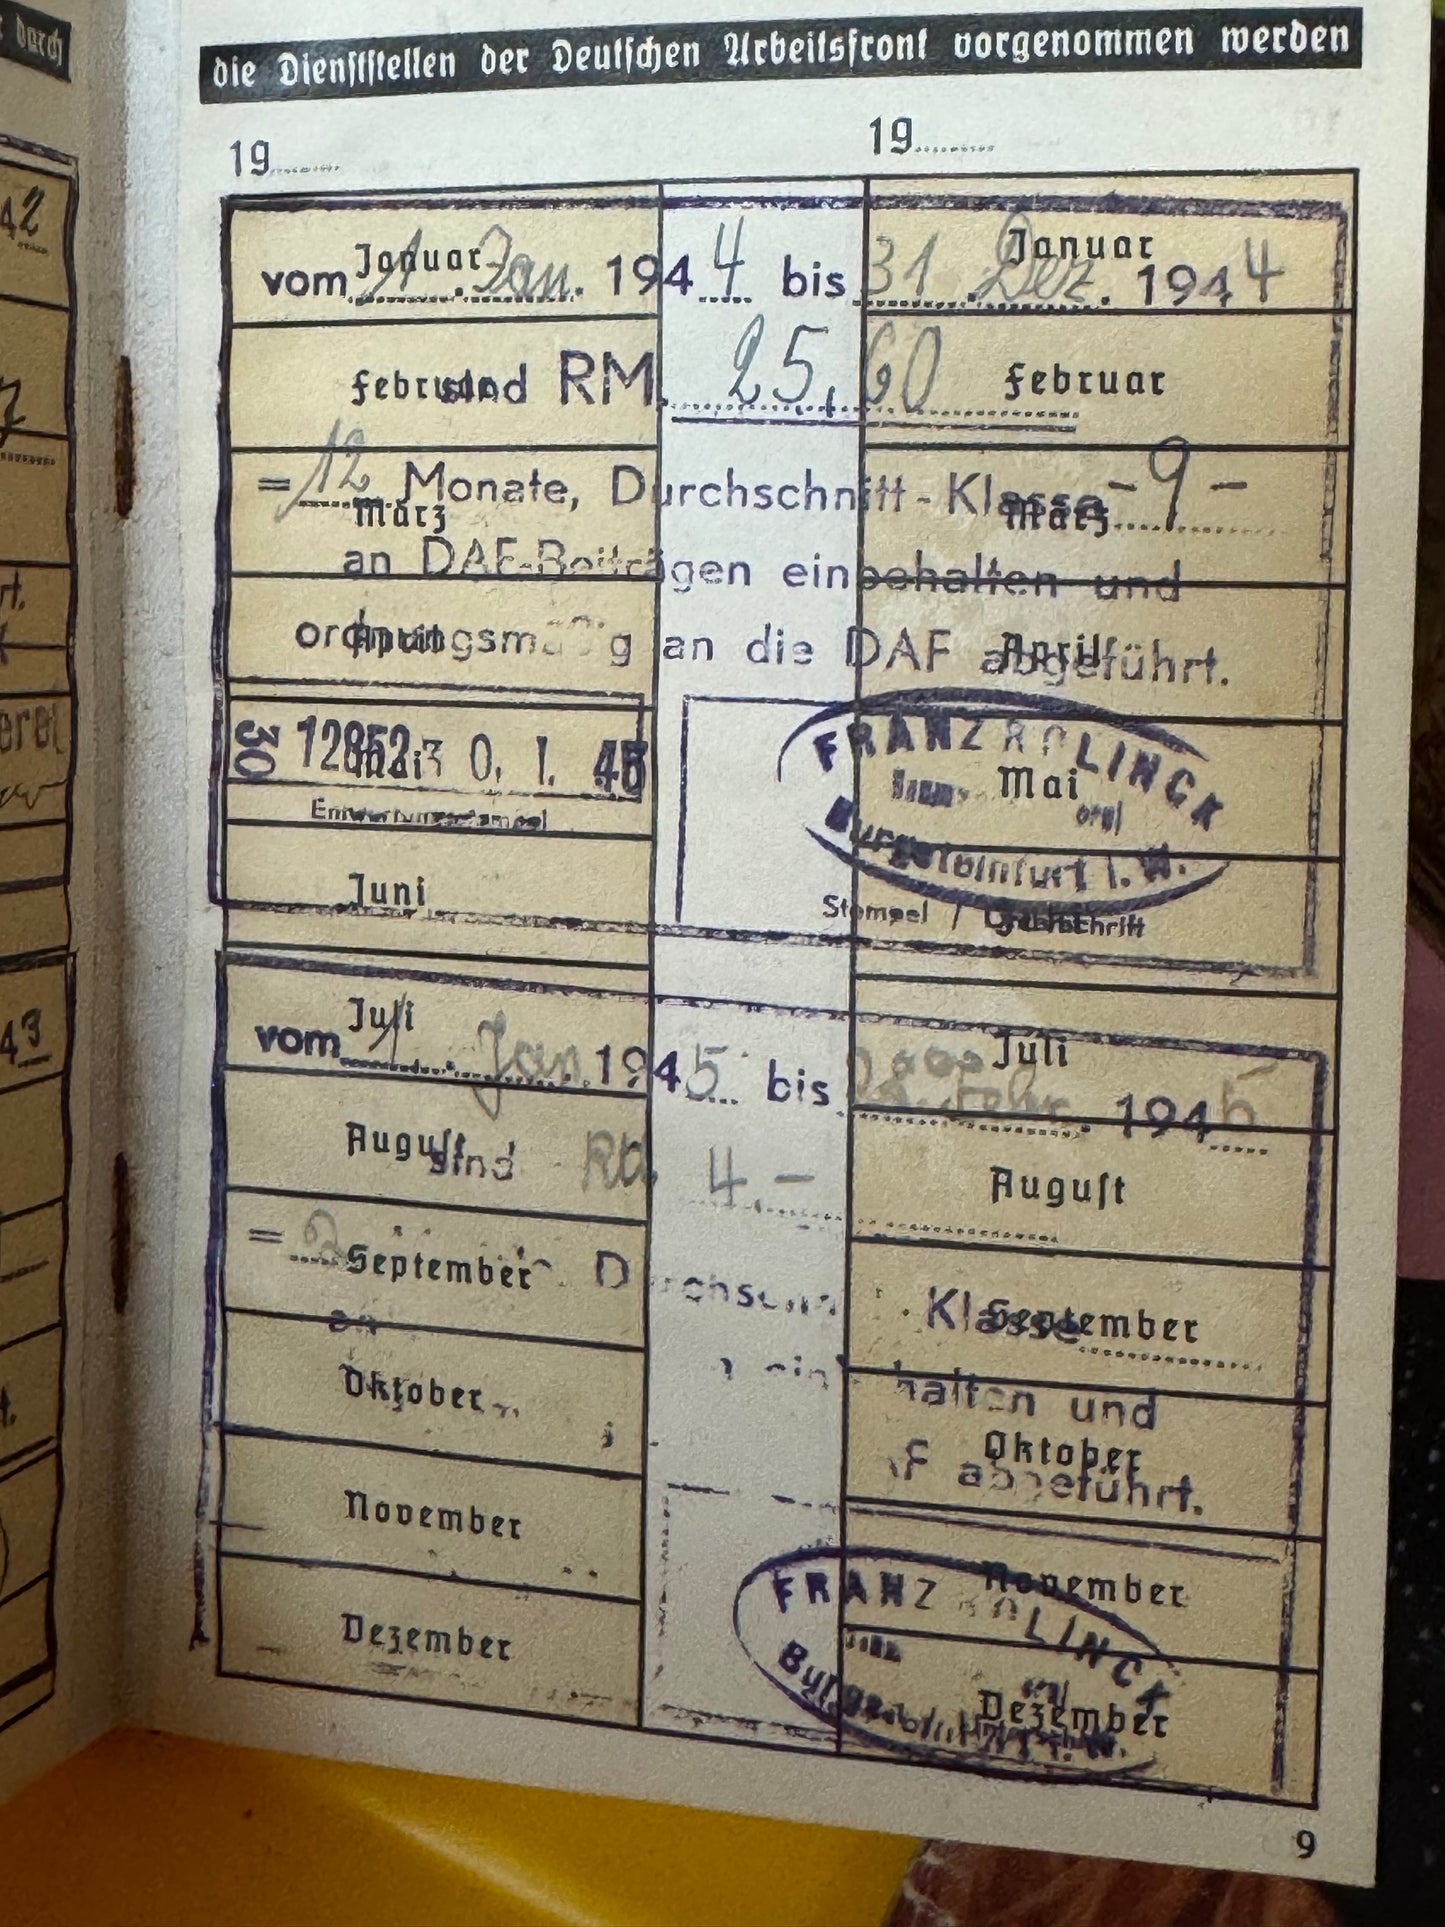 durch
die Dienststellen der Deutschen Arbeitsfront vorgenommen werden
19........ 19........
Januar Januar
vom 1. Jan. 1944 bis 31. Dez. 1944
Februar Februar
sind RM. 25,60
= 12 Monate, Durchschnitt-Klasse -9-
März März
an DAF-Beiträgen einbehalten und
April April
ordnungsmäßig an die DAF abgeführt.
30 12852 30. 1. 45
Mai Mai
FRANZ ROLINCK
Burgsteinfurt i. W.
Entwertungsstempel
Juni Juni
Stempel / Unterschrift
Juli Juli
vom 1. Jan. 1945 bis Febr. 1945
August August
sind RM. 4.-
= 2 D chschn Klasse
September September
an
ein halten und
Oktober Oktober
F abgeführt.
November November
FRANZ ROLINCK
Dezember Dezember
9
42
7
rt.
43
t.